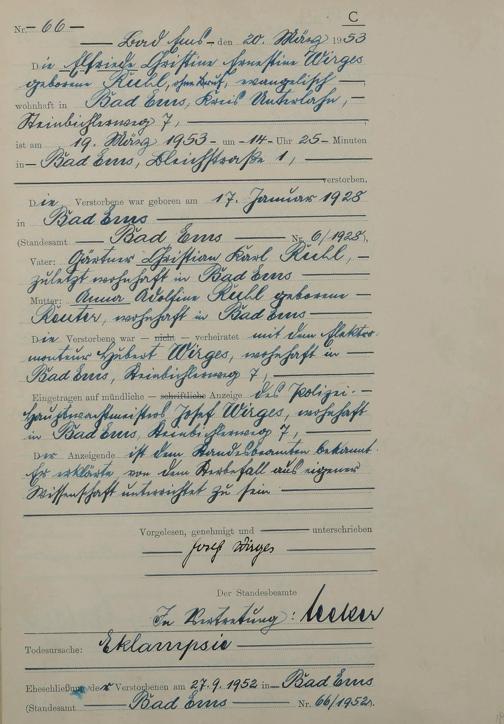 C
Nr. 66
Bad Ems, den 20. März 1953
Die Elfriede Christine Ernestine Wirges
geborene Ruhl, ohne Beruf, evangelisch
wohnhaft in Bad Ems, Kreis Unterlahn,
Steinbichlerweg 7,
ist am 19. März 1953 um 14 Uhr 25 Minuten
in Bad Ems, Bleichstraße 1,
verstorben.
Die Verstorbene war geboren am 17. Januar 1928
in Bad Ems
(Standesamt Bad Ems Nr. 6/1928).
Vater: Gärtner Christian Karl Ruhl,
zuletzt wohnhaft in Bad Ems
Mutter: Anna Adolfine Ruhl geborene
Reuter, wohnhaft in Bad Ems
Die Verstorbene war – nicht – verheiratet mit dem Elektro-
monteur Hubert Wirges, wohnhaft in
Bad Ems, Steinbichlerweg 7,
Eingetragen auf mündliche – schriftliche Anzeige des Polizei-
hauptwachtmeisters Josef Wirges, wohnhaft
in Bad Ems, Steinbichlerweg 7,
Der Anzeigende ist dem Standesbeamten bekannt.
Er erklärte von dem Sterbefall aus eigener
Wissenschaft unterrichtet zu sein
Vorgelesen, genehmigt und unterschrieben
Josef Wirges
Der Standesbeamte
In Vertretung:
Todesursache: Eklampsie
Eheschließung der Verstorbenen am 27.9.1952 in Bad Ems
(Standesamt Bad Ems Nr. 66/1952).